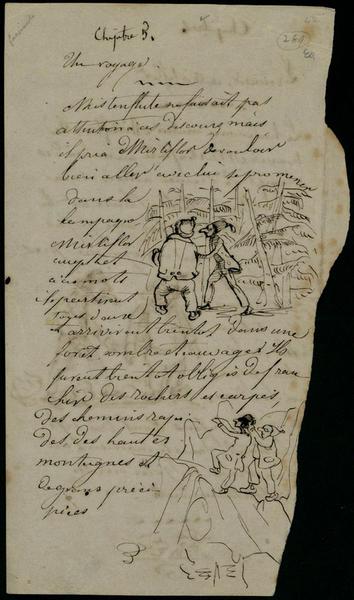 Chapitre 3.
261
Un voyage.
Mistenflute ne faisait pas
attention à ces discours mais
il pria Mirliflor de vouloir
bien aller avec lui se promener
dans la
campagne
Mirliflor
accepta et
à ces mots
ils partirent
arrivirent bientot dans une
foret sombre et sauvage Il
furent bientot obligés de fran
chir des rochers escarpés
des chemins rapi
des, des hautes
montagnes et
de grans préci
pices
3